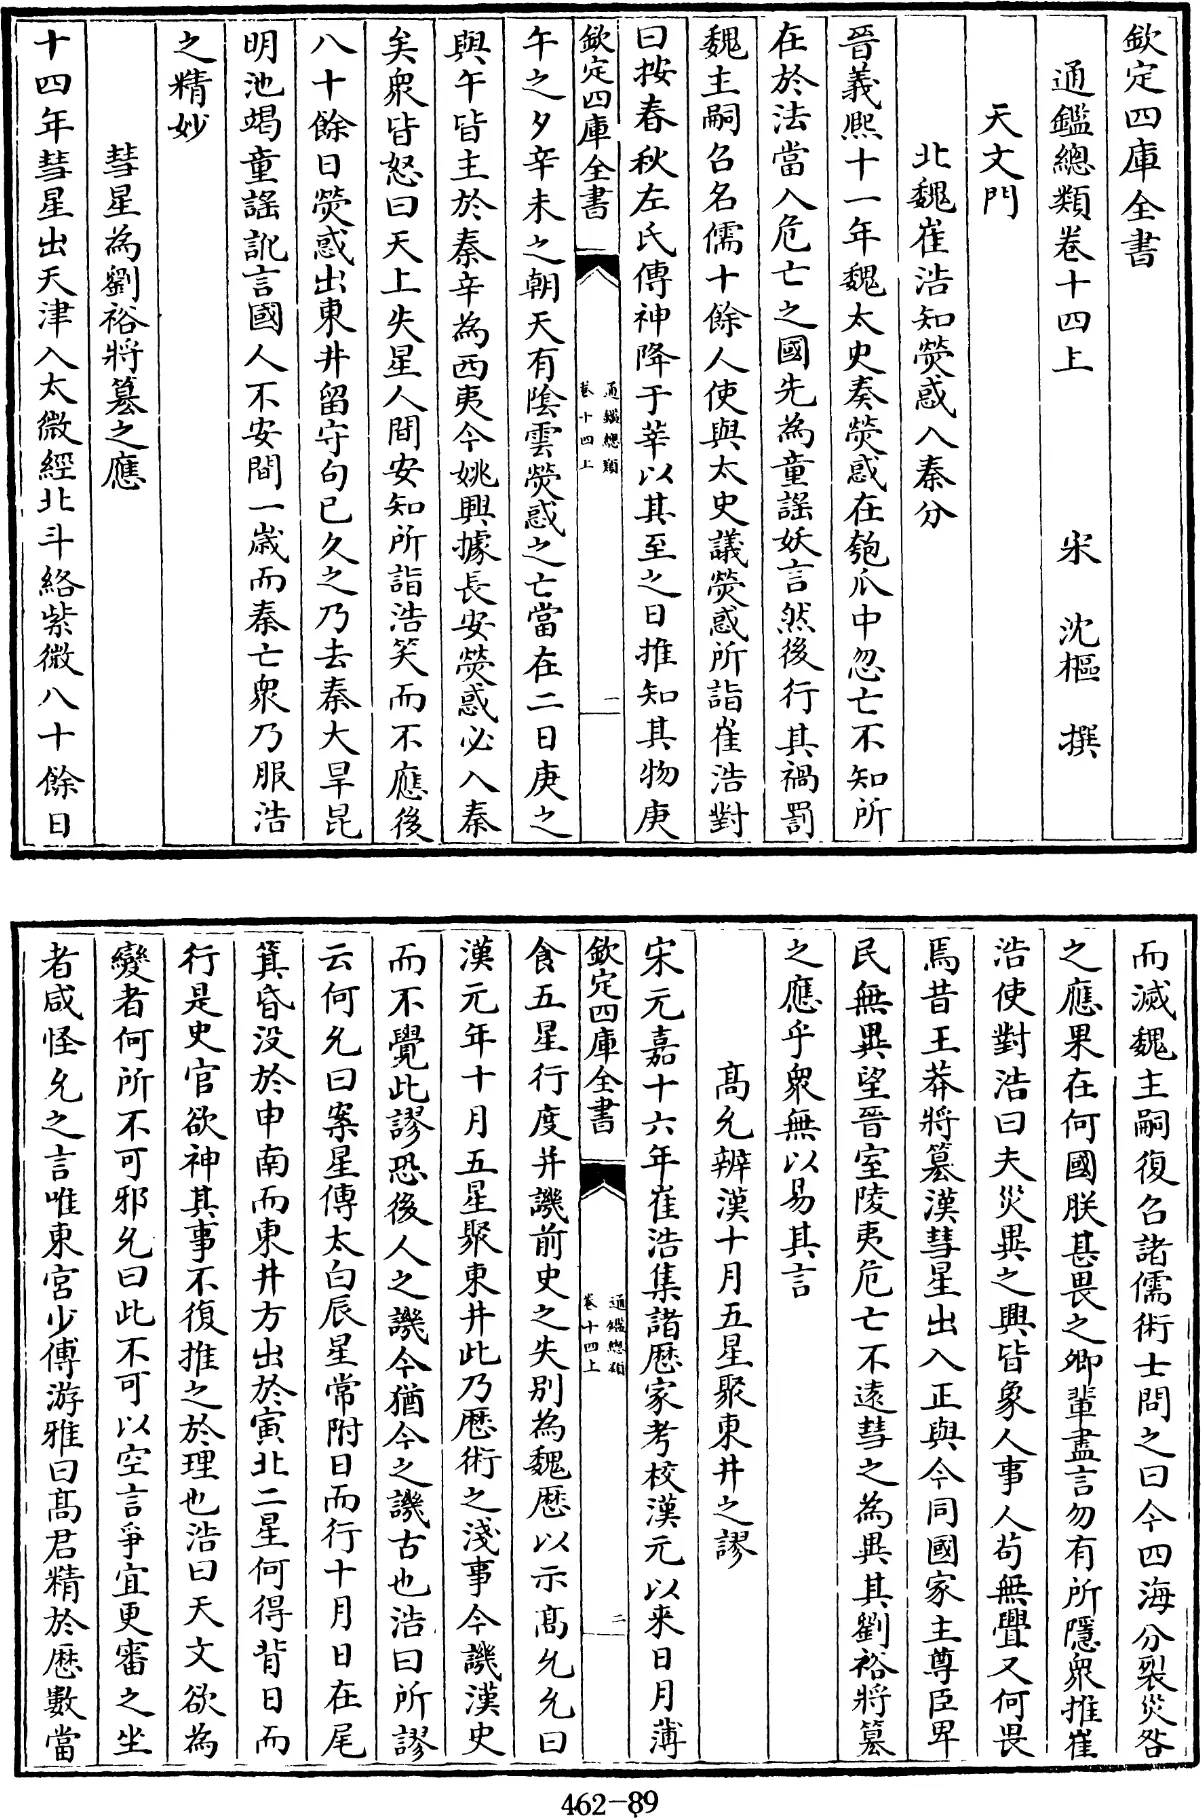 欽定四庫全書
通鑑總類卷十四上　宋　沈樞　撰
天文門
北魏崔浩知熒惑入秦分
晉義熙十一年魏太史奏熒惑在匏瓜中忽亡不知所
在於法當入危亡之國先為童謡妖言然後行其禍罰
魏主嗣召名儒十餘人使與太史議熒惑所詣崔浩對
曰按春秋左氏傳神降于莘以其至之日推知其物庚
欽定四庫全書
通鑑總類
卷十四上
一
午之夕辛未之朝天有陰雲熒惑之亡當在二日庚之
與午皆主於秦辛為西夷今姚興據長安熒惑必入秦
矣衆皆怒曰天上失星人間安知所詣浩笑而不應後
八十餘日熒惑出東井留守句已久之乃去秦大旱昆
明池竭童謡訛言國人不安間一歲而秦亡衆乃服浩
之精妙
彗星為劉裕將簒之應
十四年彗星出天津入太微經北斗絡紫微八十餘日
而滅魏主嗣復召諸儒術士問之曰今四海分裂災咎
之應果在何國朕甚畏之卿輩盡言勿有所隱衆推崔
浩使對浩曰夫災異之興皆象人事人苟無釁又何畏
焉昔王莽將簒漢彗星出入正與今同國家主尊臣卑
民無異望晉室陵夷危亡不遠彗之為異其劉裕將簒
之應乎衆無以易其言
髙允辨漢十月五星聚東井之謬
宋元嘉十六年崔浩集諸厯家考校漢元以来日月薄
欽定四庫全書
通鑑總類
卷十四上
二
食五星行度并譏前史之失别為魏厯以示髙允允曰
漢元年十月五星聚東井此乃厯術之淺事今譏漢史
而不覺此謬恐後人之譏今猶今之譏古也浩曰所謬
云何允曰案星傳太白辰星常附日而行十月日在尾
箕昏没於申南而東井方出於寅北二星何得背日而
行是史官欲神其事不復推之於理也浩曰天文欲為
變者何所不可邪允曰此不可以空言爭宜更審之坐
者咸怪允之言唯東宫少傅游雅曰髙君精於厯數當
462-89